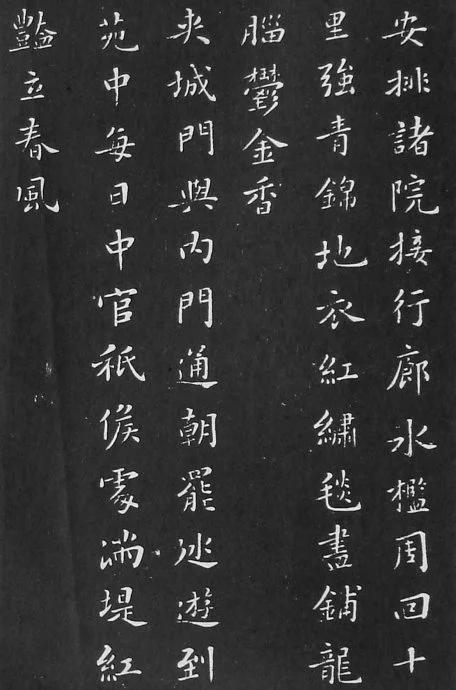 安排諸院接行廊水檻周回十
里強青錦地衣紅繡毯盡鋪龍
腦鬱金香
夾城門與内門通朝罷巡遊到
苑中每日中官祇候處滿堤紅
豔立春風